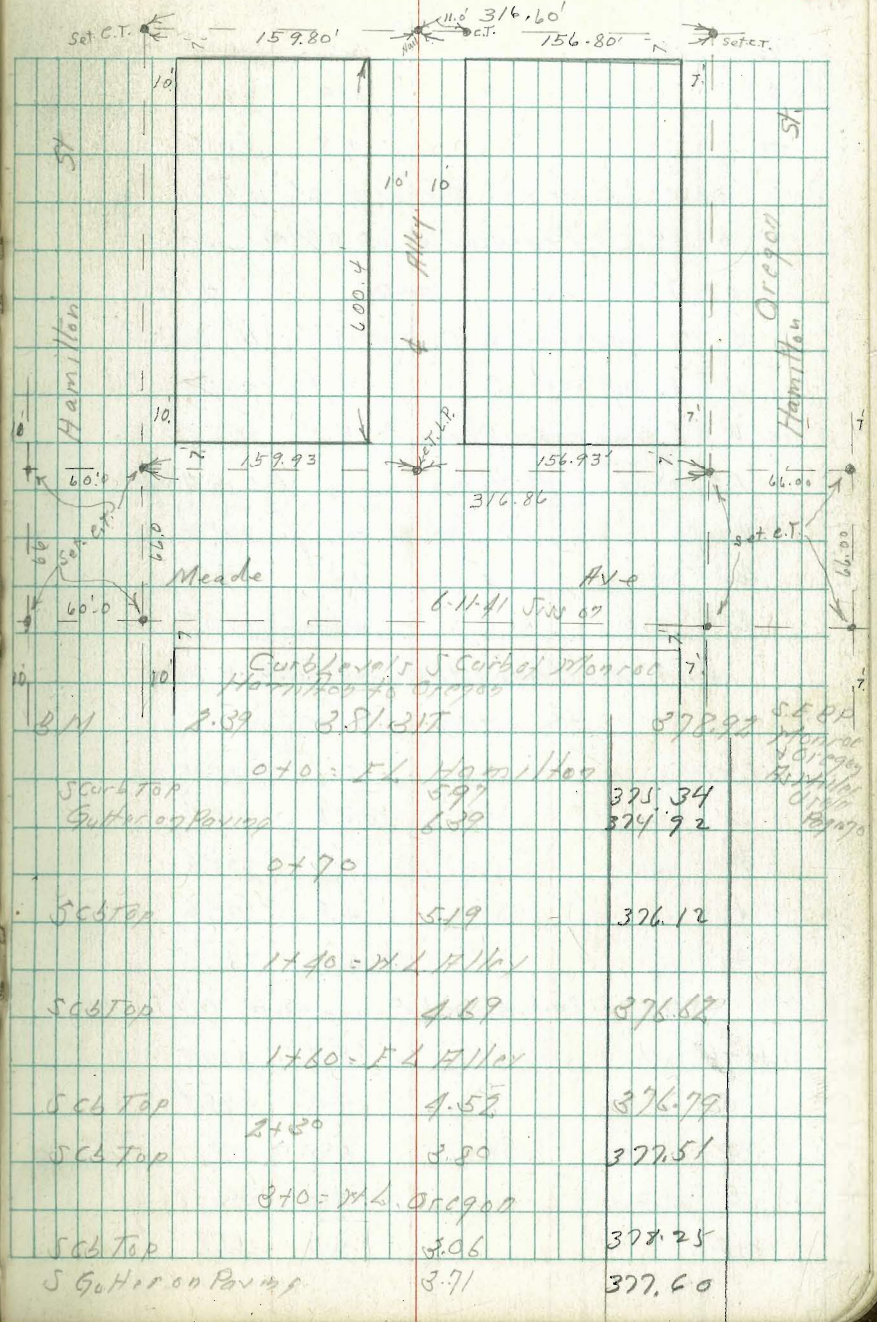 11.0' 316.60'
Set C.T. 7 159.80' Nail C.T. 156.80' 7 Set C.T.
10' 7'
St St.
10' 10'
Hamilton 600.4' ₵ Alley Oregon
Hamilton
10' 10' C.T. L.P. 7' 7'
60'.0 7 159.93 156.93' 7 66.00
316.86
66 Set. C.T. 66.0 Set C.T. 66.00
Meade Ave
60'.0 6-11-41
7 7
10' 10' Curb Levels S Curb of Monroe 7' 7'
Hamilton to Oregon
BM 2.39 381.31T 378.92 S.E.B.P.
Monroe
+ Oregon
0+0 = E L Hamilton
S Curb Top 5.97 375.34
Gutter on Paving 6.39 374.92
0+70
S Cb Top 5.19 376.12
1+40 = W.L Alley
S Cb Top 4.69 376.62
1+60 = E L Alley
S Cb Top 4.52 376.79
2+30
S Cb Top 3.80 377.51
3+0 = W.L. Oregon
S Cb Top 3.06 378.25
S Gutter on Paving 3.71 377.60